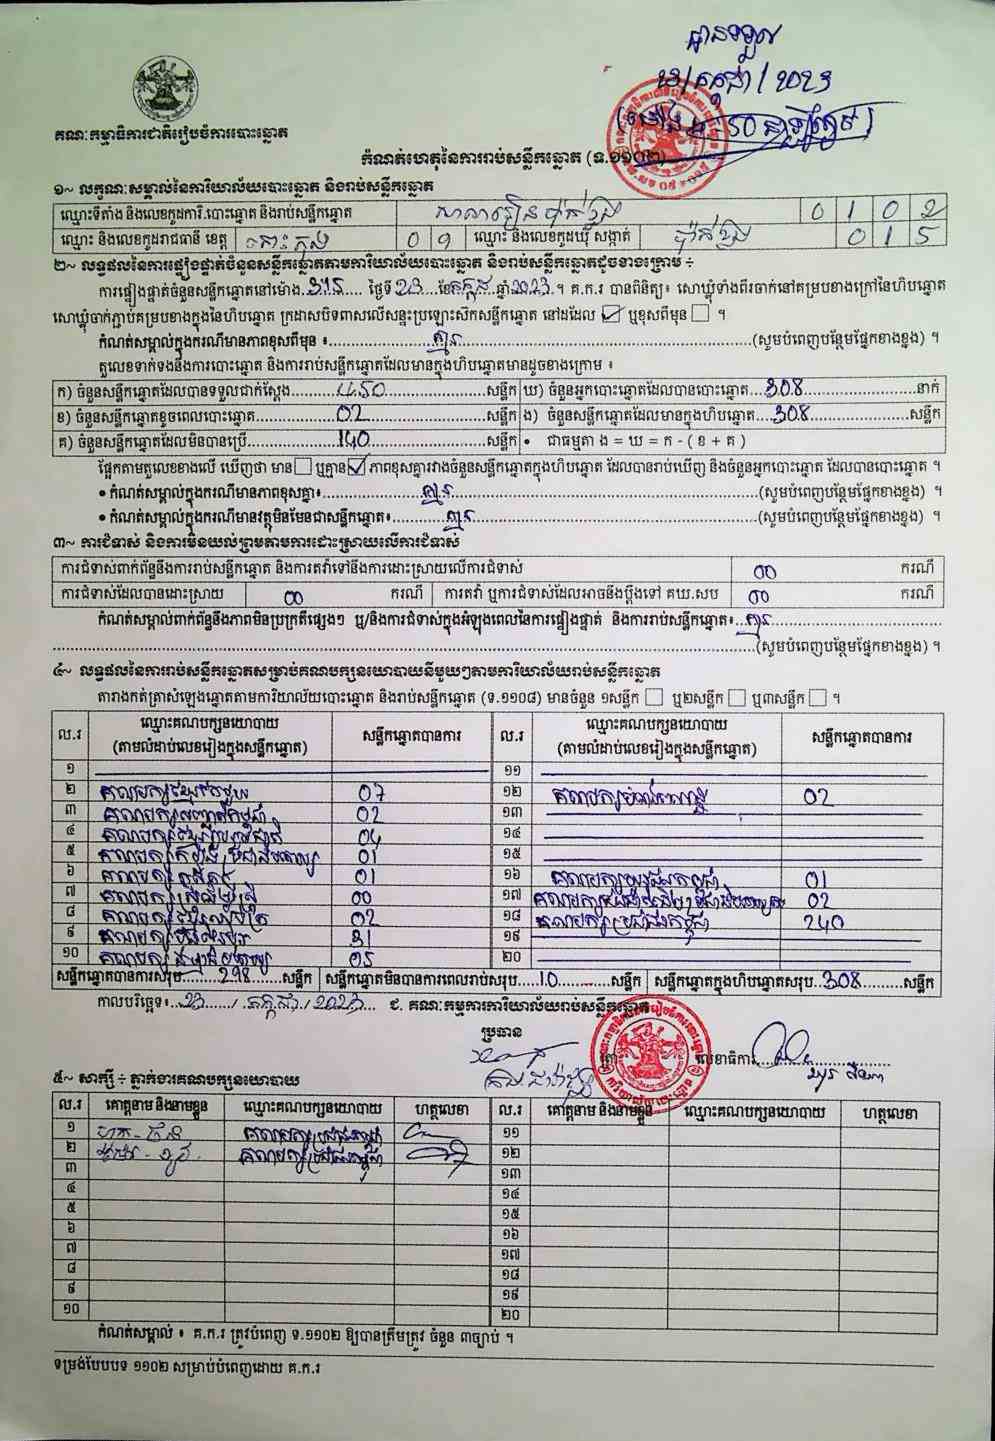 បានទទួល
២៣/កក្កដា/2023
គណៈកម្មាធិការជាតិរៀបចំការបោះឆ្នោត
កំណត់ហេតុនៃការរាប់សន្លឹកឆ្នោត (ទ.១១០២)
១~ លក្ខណៈសម្គាល់នៃការិយាល័យបោះឆ្នោត និងរាប់សន្លឹកឆ្នោត
ឈ្មោះទីតាំង និងលេខកូដការិ.បោះឆ្នោត និងរាប់សន្លឹកឆ្នោត សាលារៀនប៉ាក់ខ្លង 0 1 0 2
ឈ្មោះ និងលេខកូដរាជធានី ខេត្ត កោះកុង 0 9 ឈ្មោះ និងលេខកូដឃុំ សង្កាត់ ប៉ាក់ខ្លង 0 1 5
២~ លទ្ធផលនៃការផ្ទៀងផ្ទាត់ចំនួនសន្លឹកឆ្នោតតាមការិយាល័យបោះឆ្នោត និងរាប់សន្លឹកឆ្នោតដូចខាងក្រោម ÷
ការផ្ទៀងផ្ទាត់ចំនួនសន្លឹកឆ្នោតនៅម៉ោង ថ្ងៃទី 23 ខែ កក្កដា ឆ្នាំ 2023 ។ គ.ក.រ បានពិនិត្យ៖ សោឃ្លុំទាំងពីរចាក់នៅគម្របខាងក្រៅនៃហិបឆ្នោត
សោឃ្លុំចាក់ភ្ជាប់គម្របខាងក្នុងនៃហិបឆ្នោត ក្រដាសបិទពាសលើសន្ទះប្រឡោះស៊កសន្លឹកឆ្នោត នៅដដែល ☑ ឬខុសពីមុន ☐ ។
កំណត់សម្គាល់ក្នុងករណីមានភាពខុសពីមុន ៖ គ្មាន (សូមបំពេញបន្ថែមផ្នែកខាងខ្នង) ។
តួលេខទាក់ទងនឹងការបោះឆ្នោត និងការរាប់សន្លឹកឆ្នោតដែលមានក្នុងហិបឆ្នោតមានដូចខាងក្រោម ៖
ក) ចំនួនសន្លឹកឆ្នោតដែលបានទទួលជាក់ស្តែង 450 សន្លឹក ឃ) ចំនួនអ្នកបោះឆ្នោតដែលបានបោះឆ្នោត 308 នាក់
ខ) ចំនួនសន្លឹកឆ្នោតខូចពេលបោះឆ្នោត 02 សន្លឹក ង) ចំនួនសន្លឹកឆ្នោតដែលមានក្នុងហិបឆ្នោត 308 សន្លឹក
គ) ចំនួនសន្លឹកឆ្នោតដែលមិនបានប្រើ 140 សន្លឹក • ជាធម្មតា ង = ឃ = ក - ( ខ + គ )
ផ្អែកតាមតួលេខខាងលើ ឃើញថា មាន ☐ ឬគ្មាន ☑ ភាពខុសគ្នារវាងចំនួនសន្លឹកឆ្នោតក្នុងហិបឆ្នោត ដែលបានរាប់ឃើញ និងចំនួនអ្នកបោះឆ្នោត ដែលបានបោះឆ្នោត ។
• កំណត់សម្គាល់ក្នុងករណីមានភាពខុសគ្នា៖ គ្មាន (សូមបំពេញបន្ថែមផ្នែកខាងខ្នង) ។
• កំណត់សម្គាល់ក្នុងករណីមានវត្ថុមិនមែនជាសន្លឹកឆ្នោត៖ គ្មាន (សូមបំពេញបន្ថែមផ្នែកខាងខ្នង) ។
៣~ ការជំទាស់ និងការមិនយល់ព្រមតាមការដោះស្រាយលើការជំទាស់
ការជំទាស់ពាក់ព័ន្ធនឹងការរាប់សន្លឹកឆ្នោត និងការតវ៉ាទៅនឹងការដោះស្រាយលើការជំទាស់ 00 ករណី
ការជំទាស់ដែលបានដោះស្រាយ 00 ករណី ការតវ៉ា ឬការជំទាស់ដែលអាចនឹងប្តឹងទៅ គឃ.សប 00 ករណី
កំណត់សម្គាល់ពាក់ព័ន្ធនឹងភាពមិនប្រក្រតីផ្សេងៗ ឬ/និងការជំទាស់ក្នុងអំឡុងពេលនៃការផ្ទៀងផ្ទាត់ និងការរាប់សន្លឹកឆ្នោត៖ គ្មាន
(សូមបំពេញបន្ថែមផ្នែកខាងខ្នង) ។
៤~ លទ្ធផលនៃការរាប់សន្លឹកឆ្នោតសម្រាប់គណបក្សនយោបាយនីមួយៗតាមការិយាល័យរាប់សន្លឹកឆ្នោត
តារាងកត់ត្រាសំឡេងឆ្នោតតាមការិយាល័យបោះឆ្នោត និងរាប់សន្លឹកឆ្នោត (ទ.១១០៨) មានចំនួន ១សន្លឹក ☐ ឬ២សន្លឹក ☐ ឬ៣សន្លឹក ☐ ។
ល.រ ឈ្មោះគណបក្សនយោបាយ (តាមលំដាប់លេខរៀងក្នុងសន្លឹកឆ្នោត) សន្លឹកឆ្នោតបានការ ល.រ ឈ្មោះគណបក្សនយោបាយ (តាមលំដាប់លេខរៀងក្នុងសន្លឹកឆ្នោត) សន្លឹកឆ្នោតបានការ
១ ១១
២ គណបក្ស 07 ១២ គណបក្ស 02
៣ គណបក្ស 02 ១៣
៤ គណបក្ស 04 ១៤
៥ គណបក្ស 01 ១៥
៦ គណបក្ស 01 ១៦ គណបក្ស 01
៧ គណបក្ស 00 ១៧ គណបក្ស 02
៨ គណបក្ស 02 ១៨ គណបក្សប្រជាជនកម្ពុជា 240
៩ គណបក្ស 31 ១៩
១០ គណបក្ស 05 ២០
សន្លឹកឆ្នោតបានការសរុប 298 សន្លឹក សន្លឹកឆ្នោតមិនបានការពេលរាប់សរុប 10 សន្លឹក សន្លឹកឆ្នោតក្នុងហិបឆ្នោតសរុប 308 សន្លឹក
កាលបរិច្ឆេទ៖ 23 / កក្កដា / 2023 ជ. គណៈកម្មការការិយាល័យរាប់សន្លឹកឆ្នោត
ប្រធាន
លេខាធិការ
៥~ សាក្សី ÷ ភ្នាក់ងារគណបក្សនយោបាយ
ល.រ គោត្តនាម និងនាមខ្លួន ឈ្មោះគណបក្សនយោបាយ ហត្ថលេខា ល.រ គោត្តនាម និងនាមខ្លួន ឈ្មោះគណបក្សនយោបាយ ហត្ថលេខា
១ គណបក្សប្រជាជនកម្ពុជា ១១
២ គណបក្សប្រជាជនកម្ពុជា ១២
៣ ១៣
៤ ១៤
៥ ១៥
៦ ១៦
៧ ១៧
៨ ១៨
៩ ១៩
១០ ២០
កំណត់សម្គាល់ ៖ គ.ក.រ ត្រូវបំពេញ ទ.១១០២ ឱ្យបានត្រឹមត្រូវ ចំនួន ៣ច្បាប់ ។
ទម្រង់បែបបទ ១១០២ សម្រាប់បំពេញដោយ គ.ក.រ